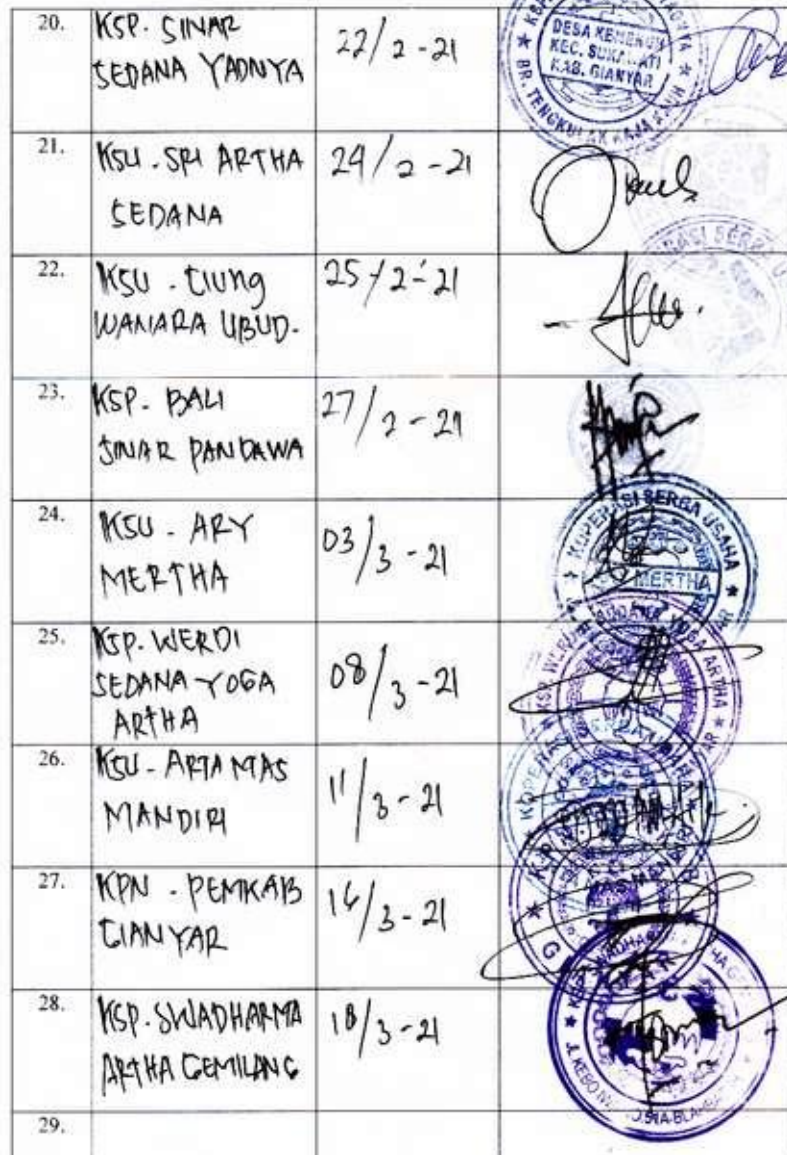 20. KSP. SINAR SEDANA YADNYA 22/2-21
DESA KEMENUH
KEC. SUKAWATI
KAB. GIANYAR
BR. TENGKULAK KAJA
21. KSU. SRI ARTHA SEDANA 24/2-21
22. KSU. CIUNG WANARA UBUD. 25/2-21
23. KSP. BALI SINAR PANDAWA 27/2-21
24. KSU. ARY MERTHA 03/3-21
KOPERASI SERBA USAHA
MERTHA
25. KSP. WERDI SEDANA YOGA ARTHA 08/3-21
YOGA ARTHA
26. KSU. ARTA MAS MANDIRI 11/3-21
27. KPN. PEMKAB GIANYAR 16/3-21
28. KSP. SWADHARMA ARTHA GEMILANG 18/3-21
29.